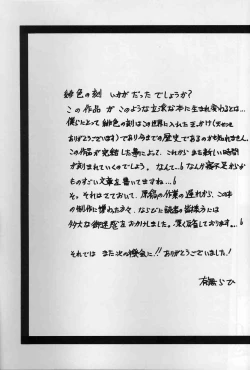 緋色の刻 いかがだったでしょうか？
この作品がこのような立派な本に生まれ変わるとは…
僕らにとって緋色の刻はこの世界に入れたきっかけ(きっかけを
ありがとうございます)であり今までの歴史であるのかも知れません。
この作品が完結した事によって、これからまた新しい時間
が刻まれていくのでしょう。なんて…。なんか寝不足からか
ものすごい文章を書いてますね…。
そ。それはさておいて、原稿の作業の遅れから、この本
の制作に携わった方々、ならびに読者の皆様方には
多大な御迷惑をおかけしました。深く反省しております…。
それでは また次の機会に!! ありがとうございました!